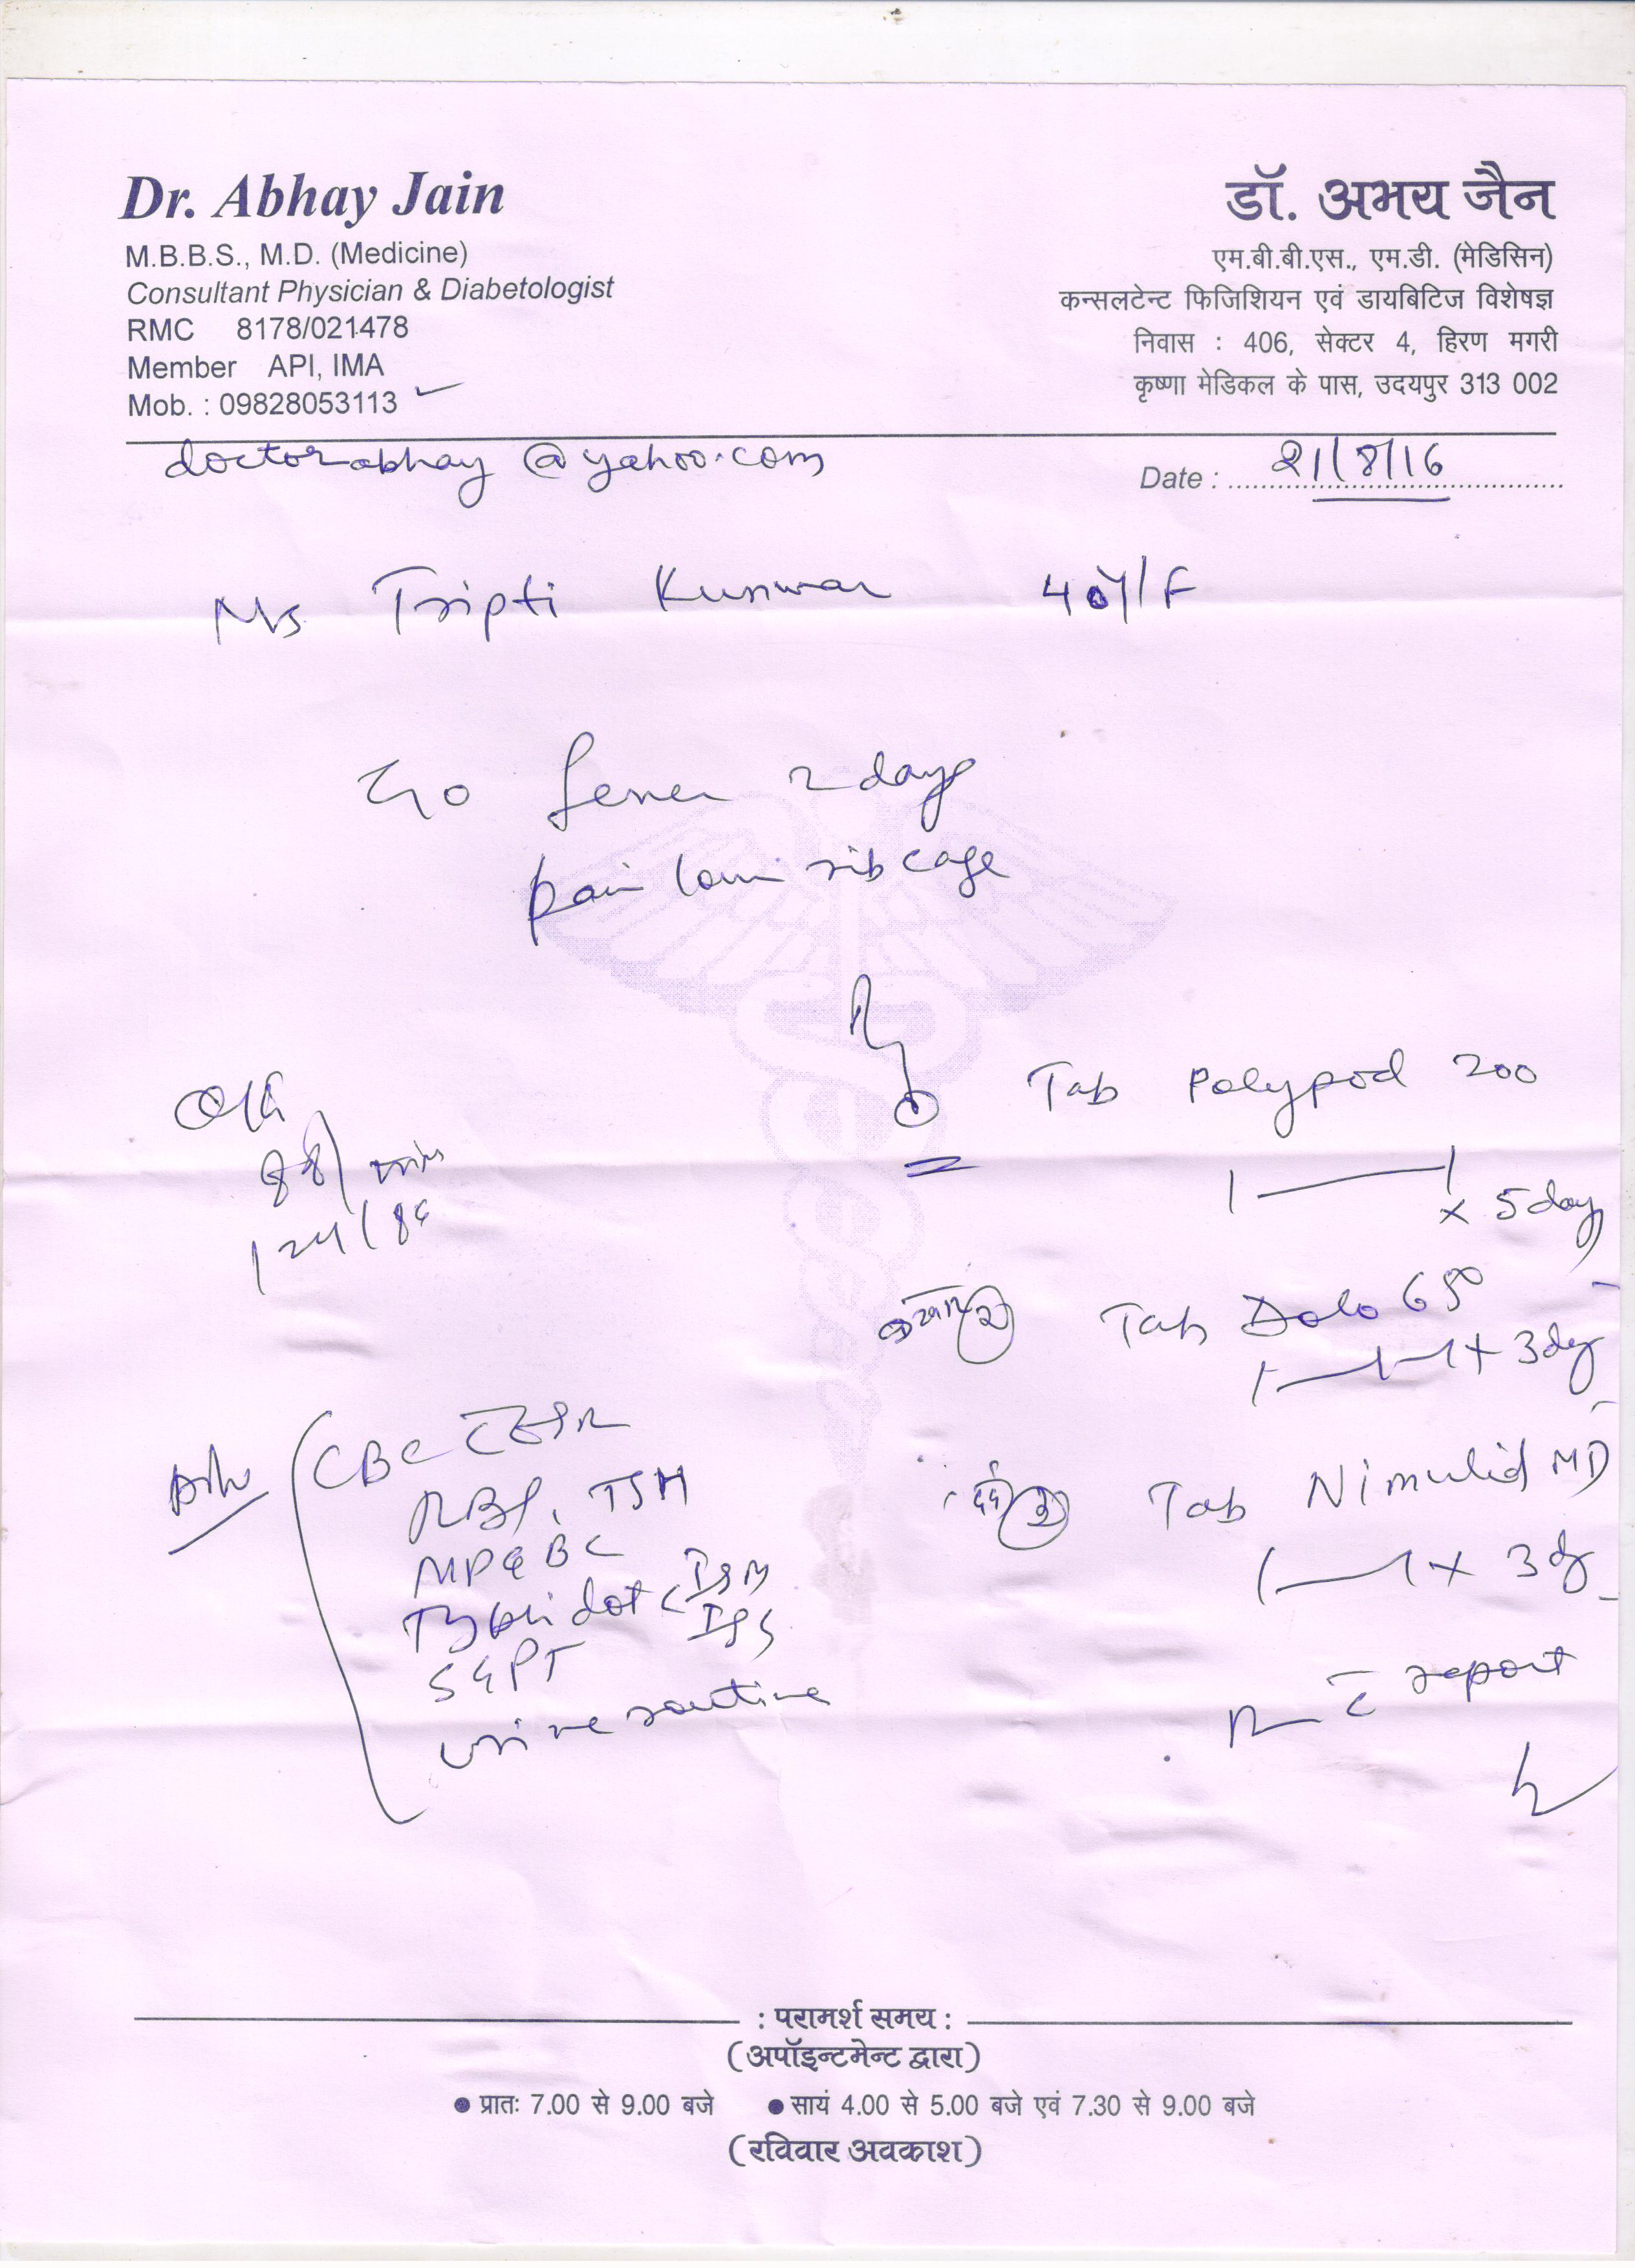 Dr. Abhay Jain
M.B.B.S., M.D. (Medicine)
Consultant Physician & Diabetologist
RMC 8178/021478
Member API, IMA
Mob. : 09828053113
डॉ. अभय जैन
एम.बी.बी.एस., एम.डी. (मेडिसिन)
कन्सलटेन्ट फिजिशियन एवं डायबिटिज विशेषज्ञ
निवास : 406, सेक्टर 4, हिरण मगरी
कृष्णा मेडिकल के पास, उदयपुर 313 002
doctorabhay@yahoo.com
Date : 21/8/16
Ms Tripti Kunwar 40y/F
fever 2 days
pain rib cage
O/E
88/min
124/84
Tab Polypod 200
1—1
x 5 day
2 Tab Dolo 650
1—1—1 x 3 day
दर्द 3 Tab Nimulid MD
1—1 x 3 d
c̄ report
Adv
CBC c̄ ESR
RBS,
MP
Typhi dot c̄ IgM
IgG
SGPT
urine routine
: परामर्श समय :
(अपॉइन्टमेन्ट द्वारा)
● प्रातः 7.00 से 9.00 बजे ● सायं 4.00 से 5.00 बजे एवं 7.30 से 9.00 बजे
(रविवार अवकाश)